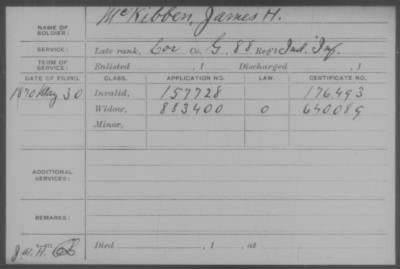 NAME OF SOLDIER: McKibben, James H.
SERVICE: Late rank, Cor Co. G, 88 Reg't Ind. Inf.
TERM OF SERVICE: Enlisted , 1 Discharged , 1
DATE OF FILING. CLASS. APPLICATION NO. LAW. CERTIFICATE NO.
1870 Aug 30 Invalid, 157728 176.493
Widow, 883400 0 640089
Minor,
ADDITIONAL SERVICES:
REMARKS:
J.W.H. Died , 1 , at